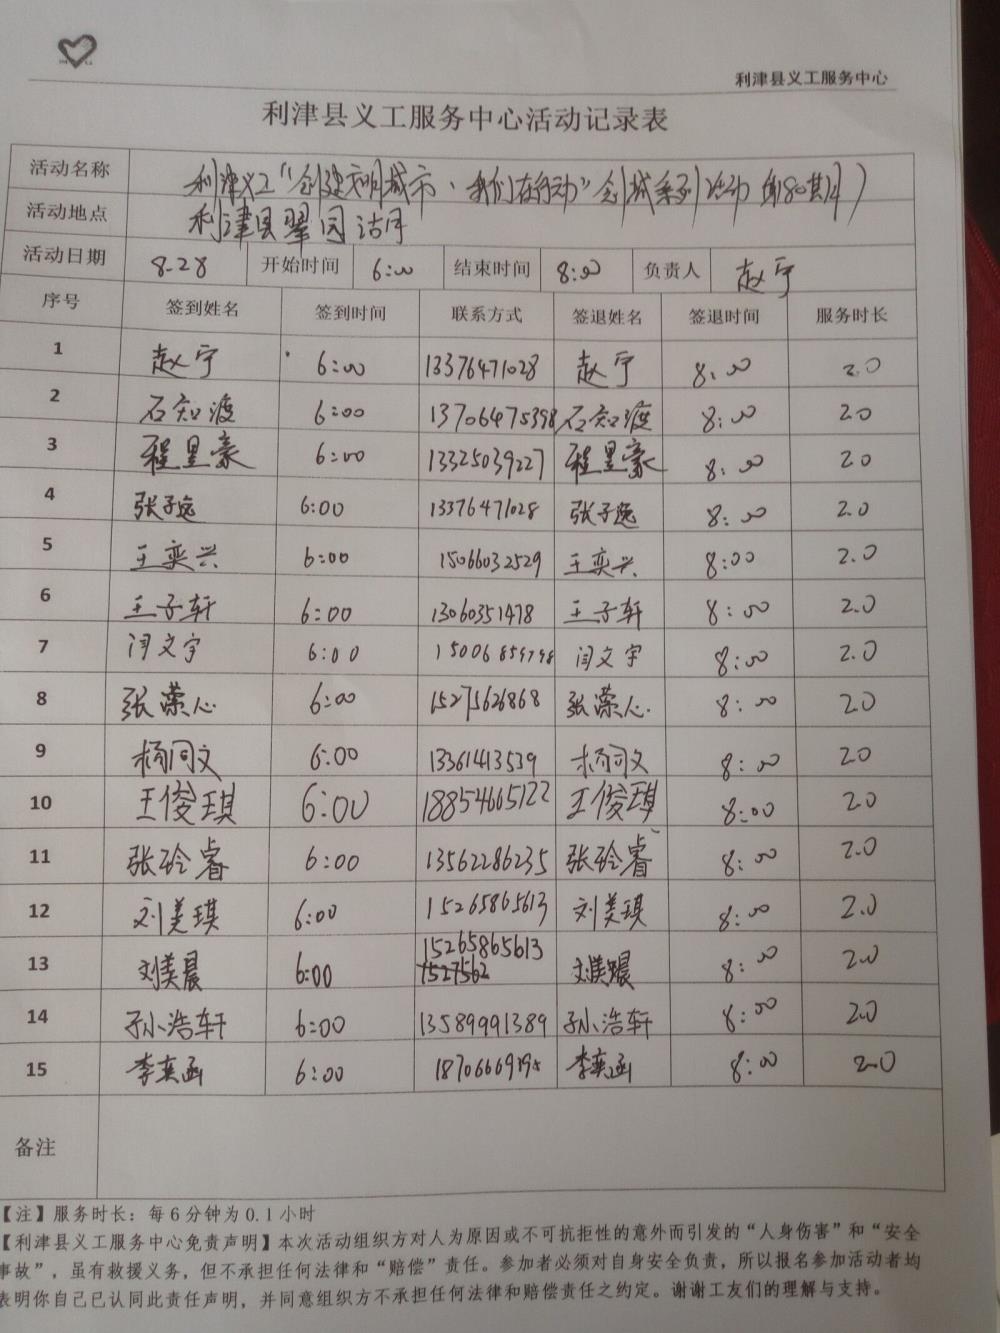 利津县义工服务中心
利津县义工服务中心活动记录表
活动名称 利津义工"创建文明城市、我们在行动"创城系列活动 第80期)
活动地点 利津县翠园
活动日期 8.28 开始时间 6:00 结束时间 8:00 负责人 赵宁
序号 签到姓名 签到时间 联系方式 签退姓名 签退时间 服务时长
1 赵宁 6:00 13376471028 赵宁 8:00 2.0
2 石知渡 6:00 13706475398 石知渡 8:00 2.0
3 程昱豪 6:00 13325039227 程昱豪 8:00 2.0
4 张子逸 6:00 13376471028 张子逸 8:00 2.0
5 王奕兴 6:00 15066032529 王奕兴 8:00 2.0
6 王子轩 6:00 13060351478 王子轩 8:00 2.0
7 闫文宇 6:00 15006859798 闫文宇 8:00 2.0
8 张荣心 6:00 15275626868 张荣心 8:00 2.0
9 杨问文 6:00 13361413539 杨问文 8:00 2.0
10 王俊琪 6:00 18854665122 王俊琪 8:00 2.0
11 张玲睿 6:00 13562286235 张玲睿 8:00 2.0
12 刘美琪 6:00 15265865613 刘美琪 8:00 2.0
13 刘美晨 6:00 15265865613 刘美晨 8:00 2.0
1527562
14 孙浩轩 6:00 13589991389 孙浩轩 8:00 2.0
15 李奕函 6:00 李奕函 8:00 2.0
备注
【注】服务时长：每6分钟为0.1小时
【利津县义工服务中心免责声明】本次活动组织方对人为原因或不可抗拒性的意外而引发的“人身伤害”和“安全
事故”，虽有救援义务，但不承担任何法律和“赔偿”责任。参加者必须对自身安全负责，所以报名参加活动者均
表明你自己已认同此责任声明，并同意组织方不承担任何法律和赔偿责任之约定。谢谢工友们的理解与支持。